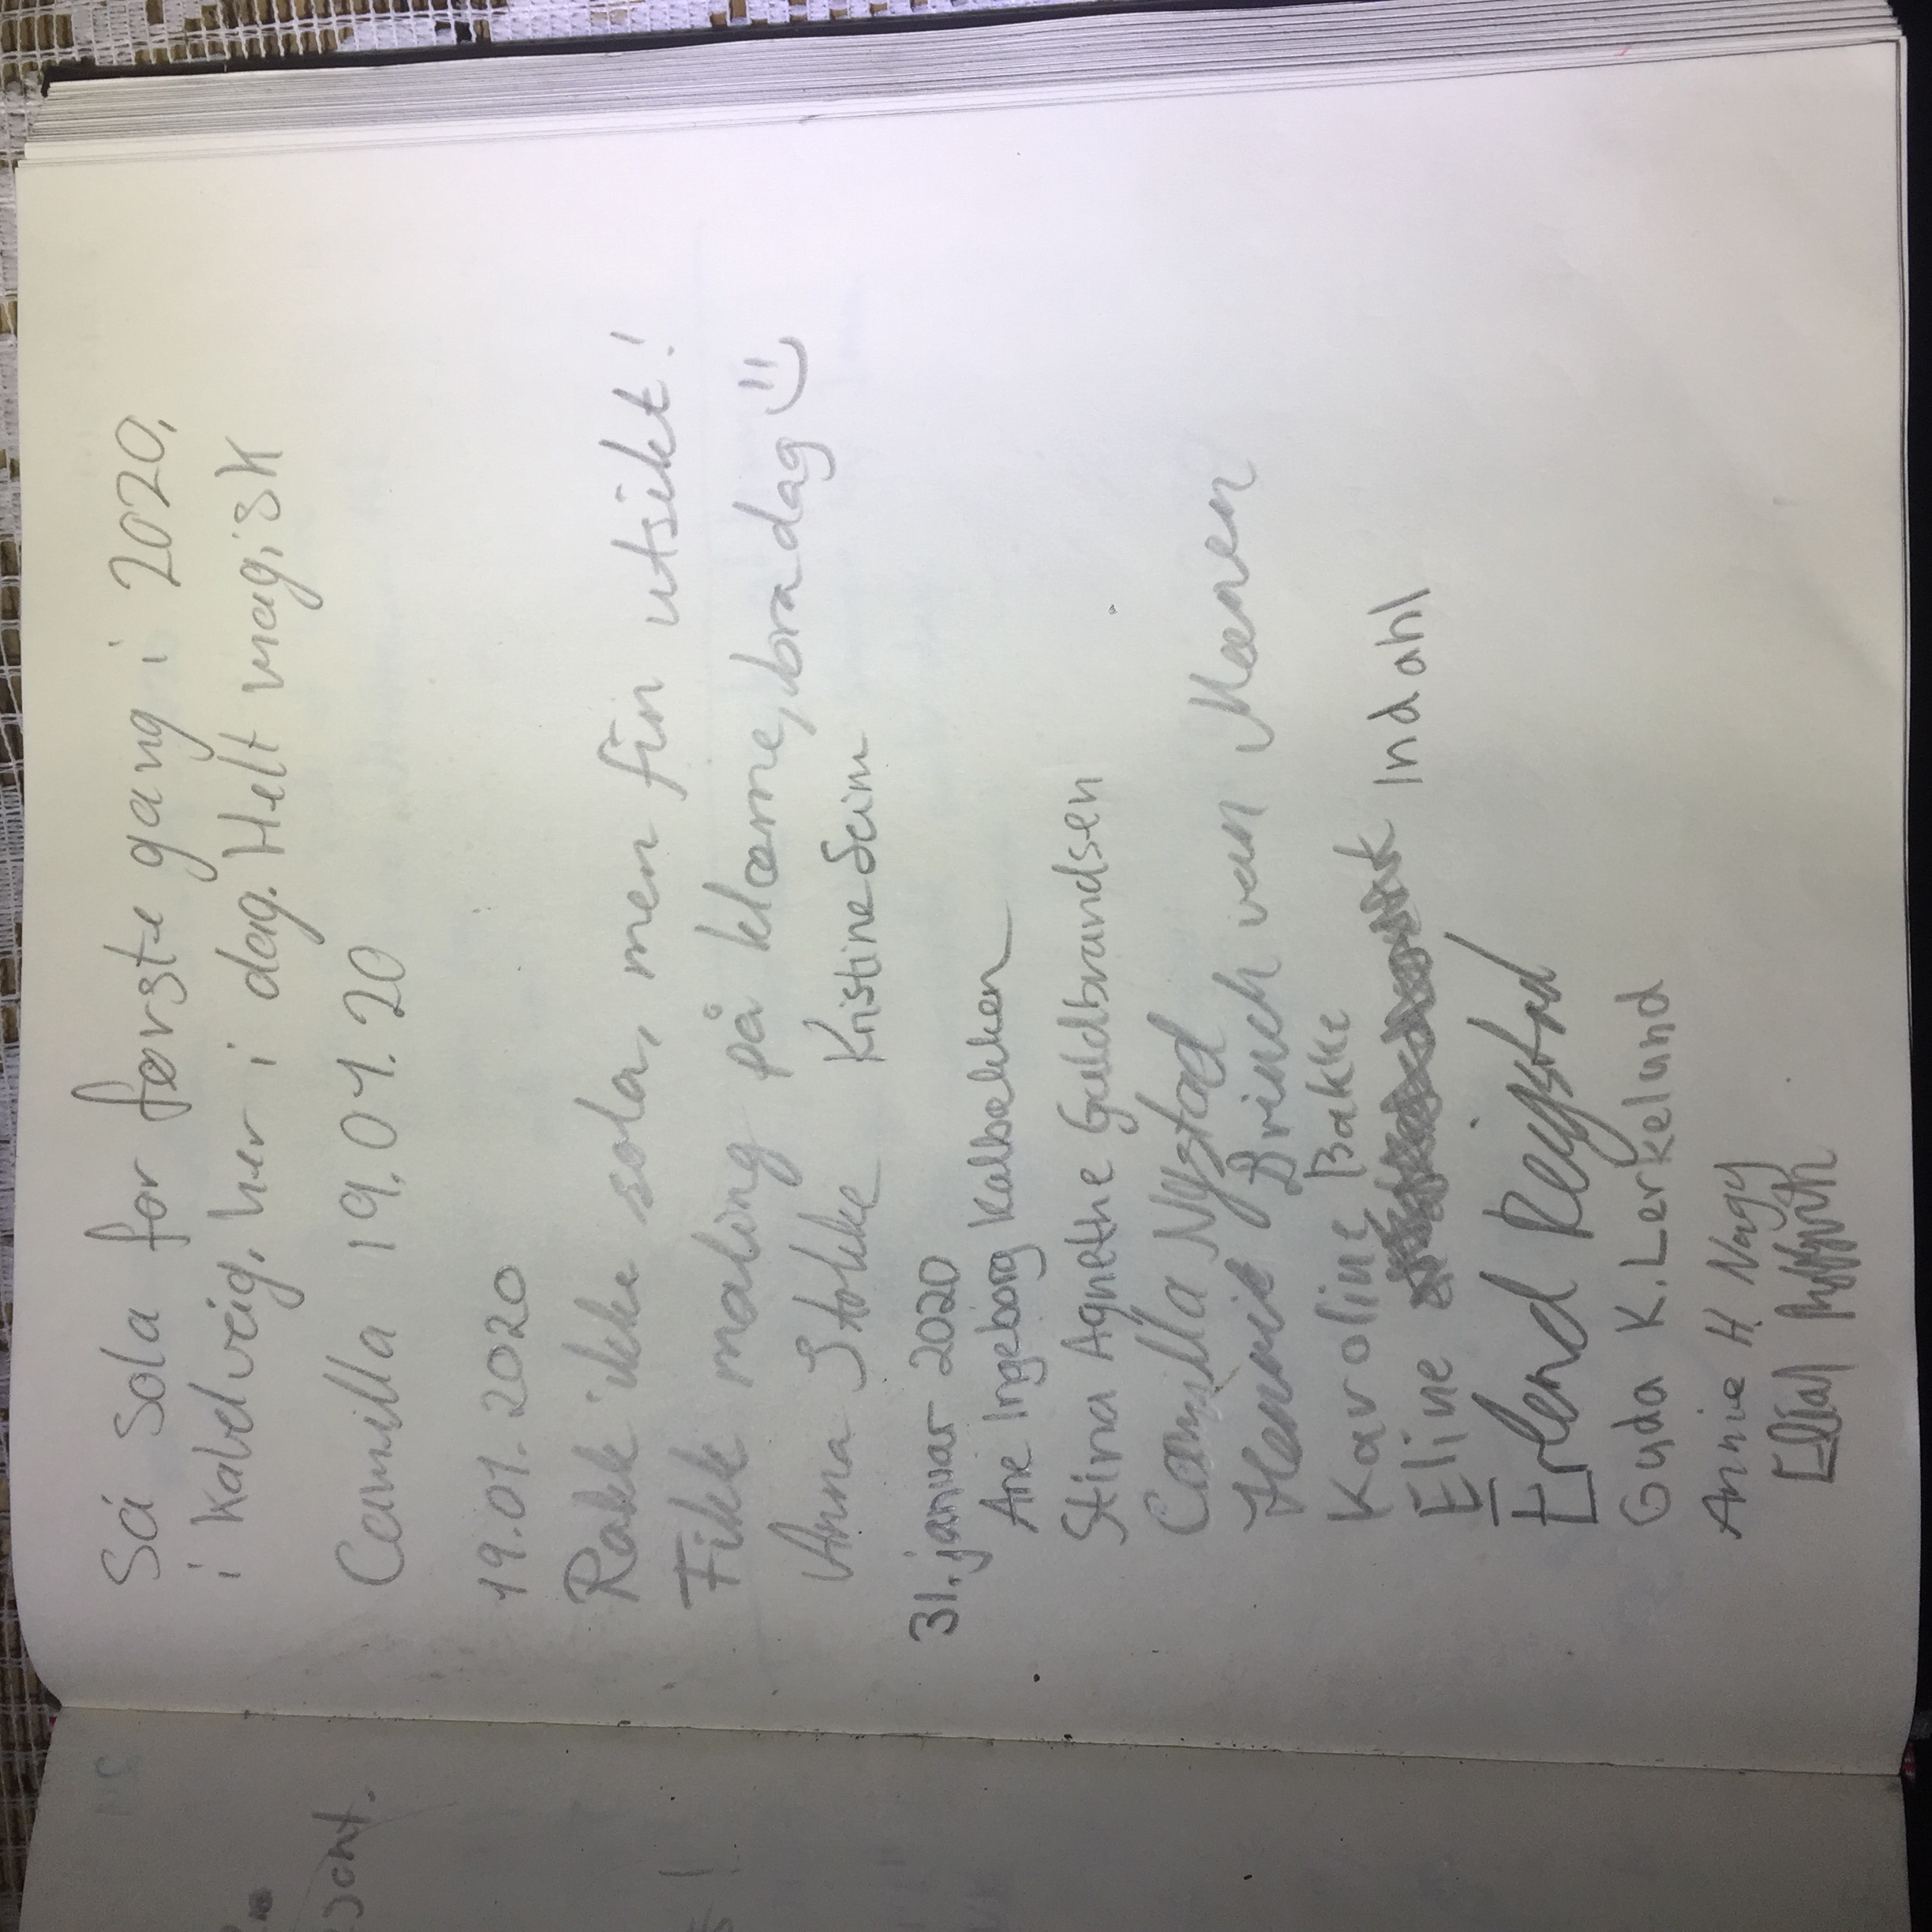 Så sola for første gang i 2020,
i Kabelvåg, her i dag. Helt magisk
Camilla 19.01.20
19.01.2020
Rakk ikke sola, men fin utsikt!
Fikk maling på klærne, bra dag
Anna Stokke Kristine Seim
31. januar 2020
Ane Ingeborg Kalbækken
Stina Agnethe Guldbrandsen
Camilla Nystad
Henrik Brinch van Meenen
Karoline Bakke
Eline Indahl
Erlend Røystad
Guda K. Lerkelund
Annie H. Nagy